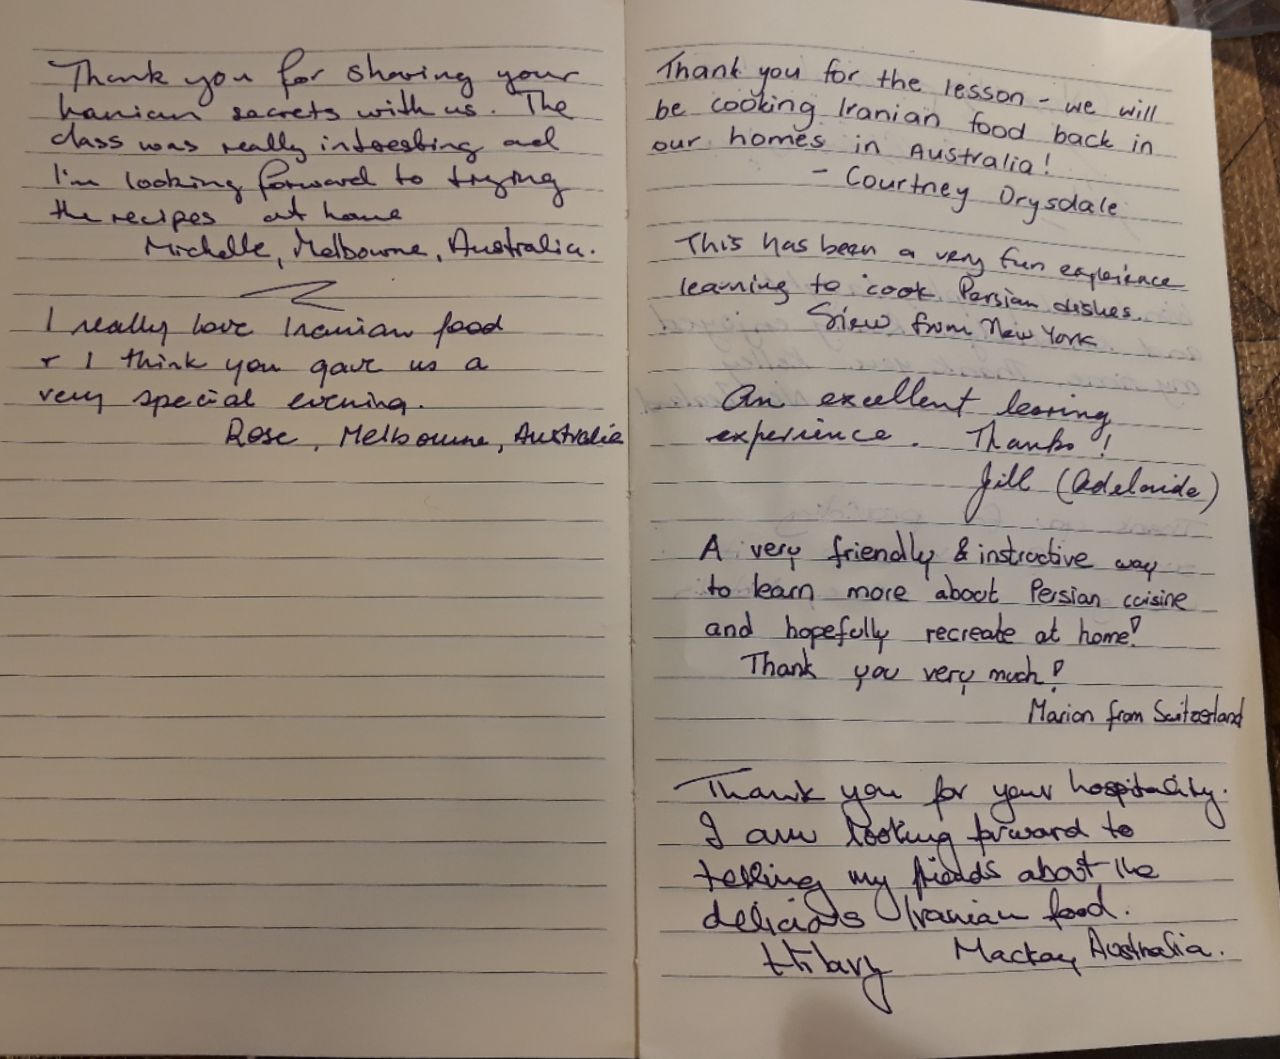 Thank you for sharing your
Iranian secrets with us. The
class was really interesting and
I'm looking forward to trying
the recipes at home
Michelle, Melbourne, Australia.
I really love Iranian food
+ I think you gave us a
very special evening.
Rose, Melbourne, Australia
Thank you for the lesson - we will
be cooking Iranian food back in
our homes in Australia!
- Courtney Drysdale
This has been a very fun experience
learning to cook Persian dishes.
from New York
An excellent learing
experience. Thanks!
Jill (Adelaide)
A very friendly & instructive way
to learn more about Persian cuisine
and hopefully recreate at home!
Thank you very much!
Marion from Switzerland
Thank you for your hospitality.
I am looking forward to
telling my friends about the
delicious Iranian food.
Hilary Mackay Australia.